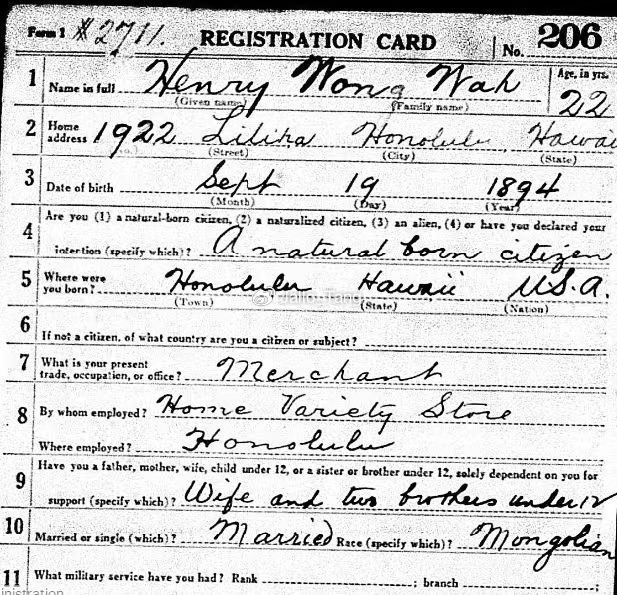 Form 1 #2711. REGISTRATION CARD No. 206
1 Name in full Henry Wong Wah Age, in yrs.
(Given name) (Family name) 22
2 Home address 1922 Liliha Honolulu Hawaii
(No.) (Street) (City) (State)
3 Date of birth Sept 19 1894
(Month) (Day) (Year)
Are you (1) a natural-born citizen, (2) a naturalized citizen, (3) an alien, (4) or have you declared your
4 intention (specify which)? A natural born citizen
5 Where were you born? Honolulu Hawaii U.S.A.
(Town) (State) (Nation)
6 If not a citizen, of what country are you a citizen or subject?
7 What is your present trade, occupation, or office? Merchant
8 By whom employed? Home Variety Store
Where employed? Honolulu
Have you a father, mother, wife, child under 12, or a sister or brother under 12, solely dependent on you for
9 support (specify which)? Wife and two brothers under 12
10 Married or single (which)? Married Race (specify which)? Mongolian
11 What military service have you had? Rank ; branch